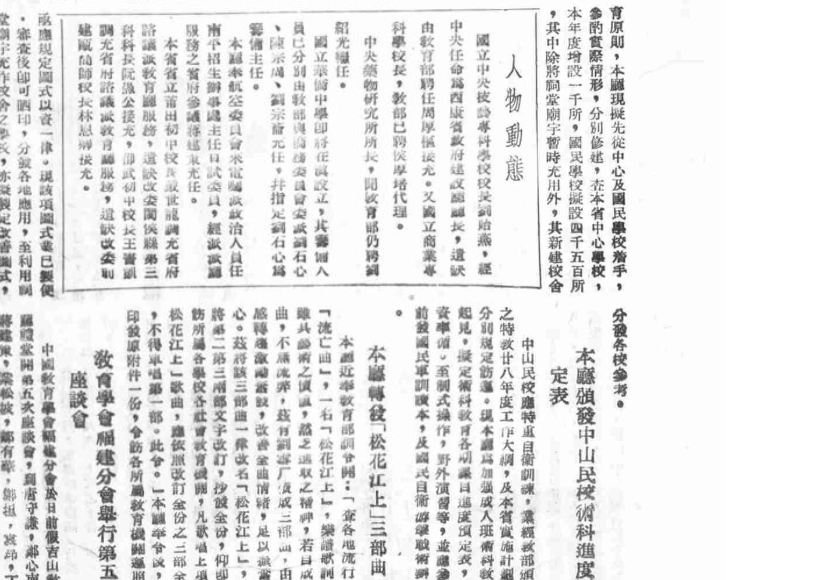 育原則，本廳現擬先從中心及國民學校着手，
參酌實際情形，分別修建，查本省中心學校，
本年度增設一千所，國民學校擬設四千五百所
，其中除將祠堂廟宇暫時充用外，其新建校舍
人物動態
國立中央技藝專科學校校長劉貽燕，經
中央任命爲西康省政府建設廳廳長，遺缺
由教育部聘任周厚樞接充。又國立商業專
科學校長，教部已聘侯厚培代理。
中央藥物研究所所長，聞教育部仍聘劉
紹光繼任。
國立華僑中學即將在滇設立，其籌備人
員已分別由教部與僑務委員會委派劉石心
、陳宗周、劉宗翁充任，并指定劉石心爲
籌備主任。
本廳奉航空委員會來電囑派政治人員任
南平招生辦事處主任口試委員，經派本廳
服務之省府參議蔣建策充任。
本省省立莆田初中校長戴世龍調充省府
諮議派教育廳服務，遺缺改委閩侯縣第三
科科長阮漁公接充，邵武初中校長王書貽
調充省府諮議派教育廳服務，遺缺改委前
建甌簡師校長林恩順接充。
亟應規定圖式以資一律。現該項圖式業已製便
，審查後即可晒印，分發各地應用，至利用祠
堂廟宇充作校舍之學校，亦擬製定改善圖式，
分發各校參考。
本廳頒發中山民校術科進度
定表
中山民校應特重自衛訓練，業經教部頒
之特教廿八年度工作大綱，及本省實施計劃
分別規定飭遵。現本廳爲加强成人班術科教
起見，擬定術科教育各期課目進度預定表，
資準備。至制式操作，野外演習等，並應參
前發國民軍訓讀本，及國民自衛游擊戰術綱
。
本廳轉發「松花江上」三部曲
本廳近奉教育部訓令開：「查各地流行
「流亡曲」，一名「松花江上」，樂譜歌詞
雖具藝術之價值，然乏進取之精神，若目成
曲，不無流弊，茲有劉雪厂廣成三部曲，由
感轉趨激勵奮發，改善全曲情緒，足以振奮
心。茲將該三部曲一律改名「松花江上」，
將第二第三兩部文字改訂，抄發全份，仰即
飭所屬各學校各社會教育機關，凡歌唱上項
松花江上」歌曲，應依照改訂全份之三部全
，不得單唱第一部。此令。」本廳奉令後，
印發原附件一份，令飭各所屬教育機關遵照
教育學會福建分會舉行第五
座談會
中國教育學會福建分會於日前假吉山教
廳禮堂開第五次座談會，到唐守謙，鄭心南
蔣建策，葉松坡，鄒有華，鄭挺，